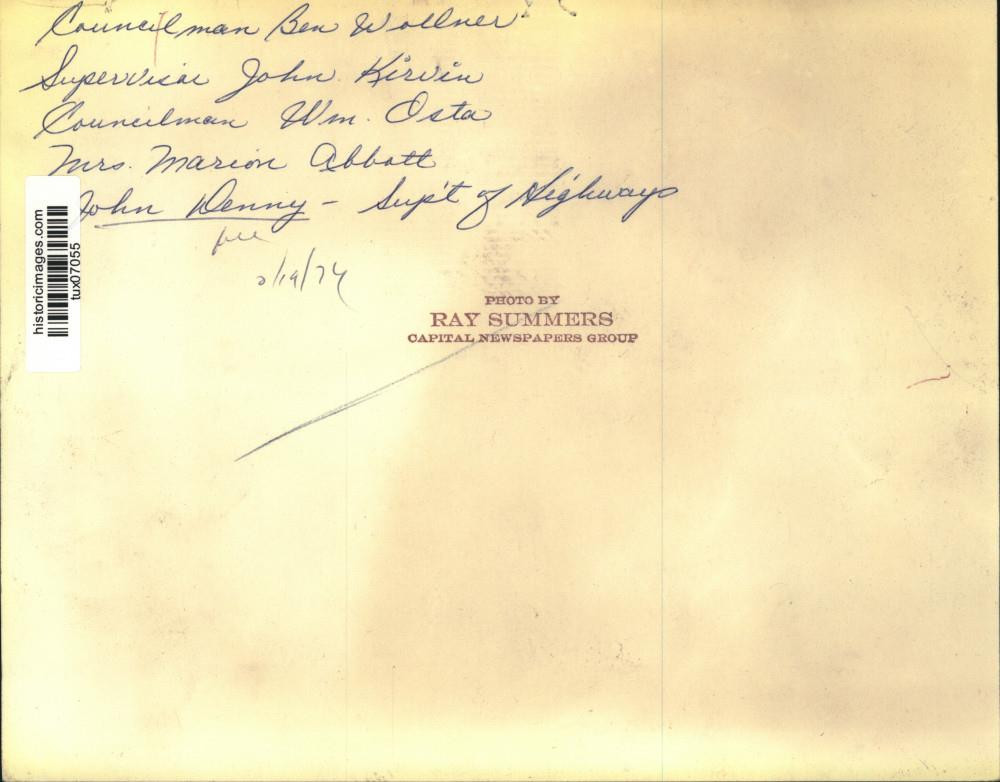 Councilman Ben Wollner
Supervisor John Kirvin
Councilman Wm. Osta
Mrs. Marion Abbott
John Denny - Sup't of Highways
file
historicimages.com
tux07055
PHOTO BY
RAY SUMMERS
CAPITAL NEWSPAPERS GROUP